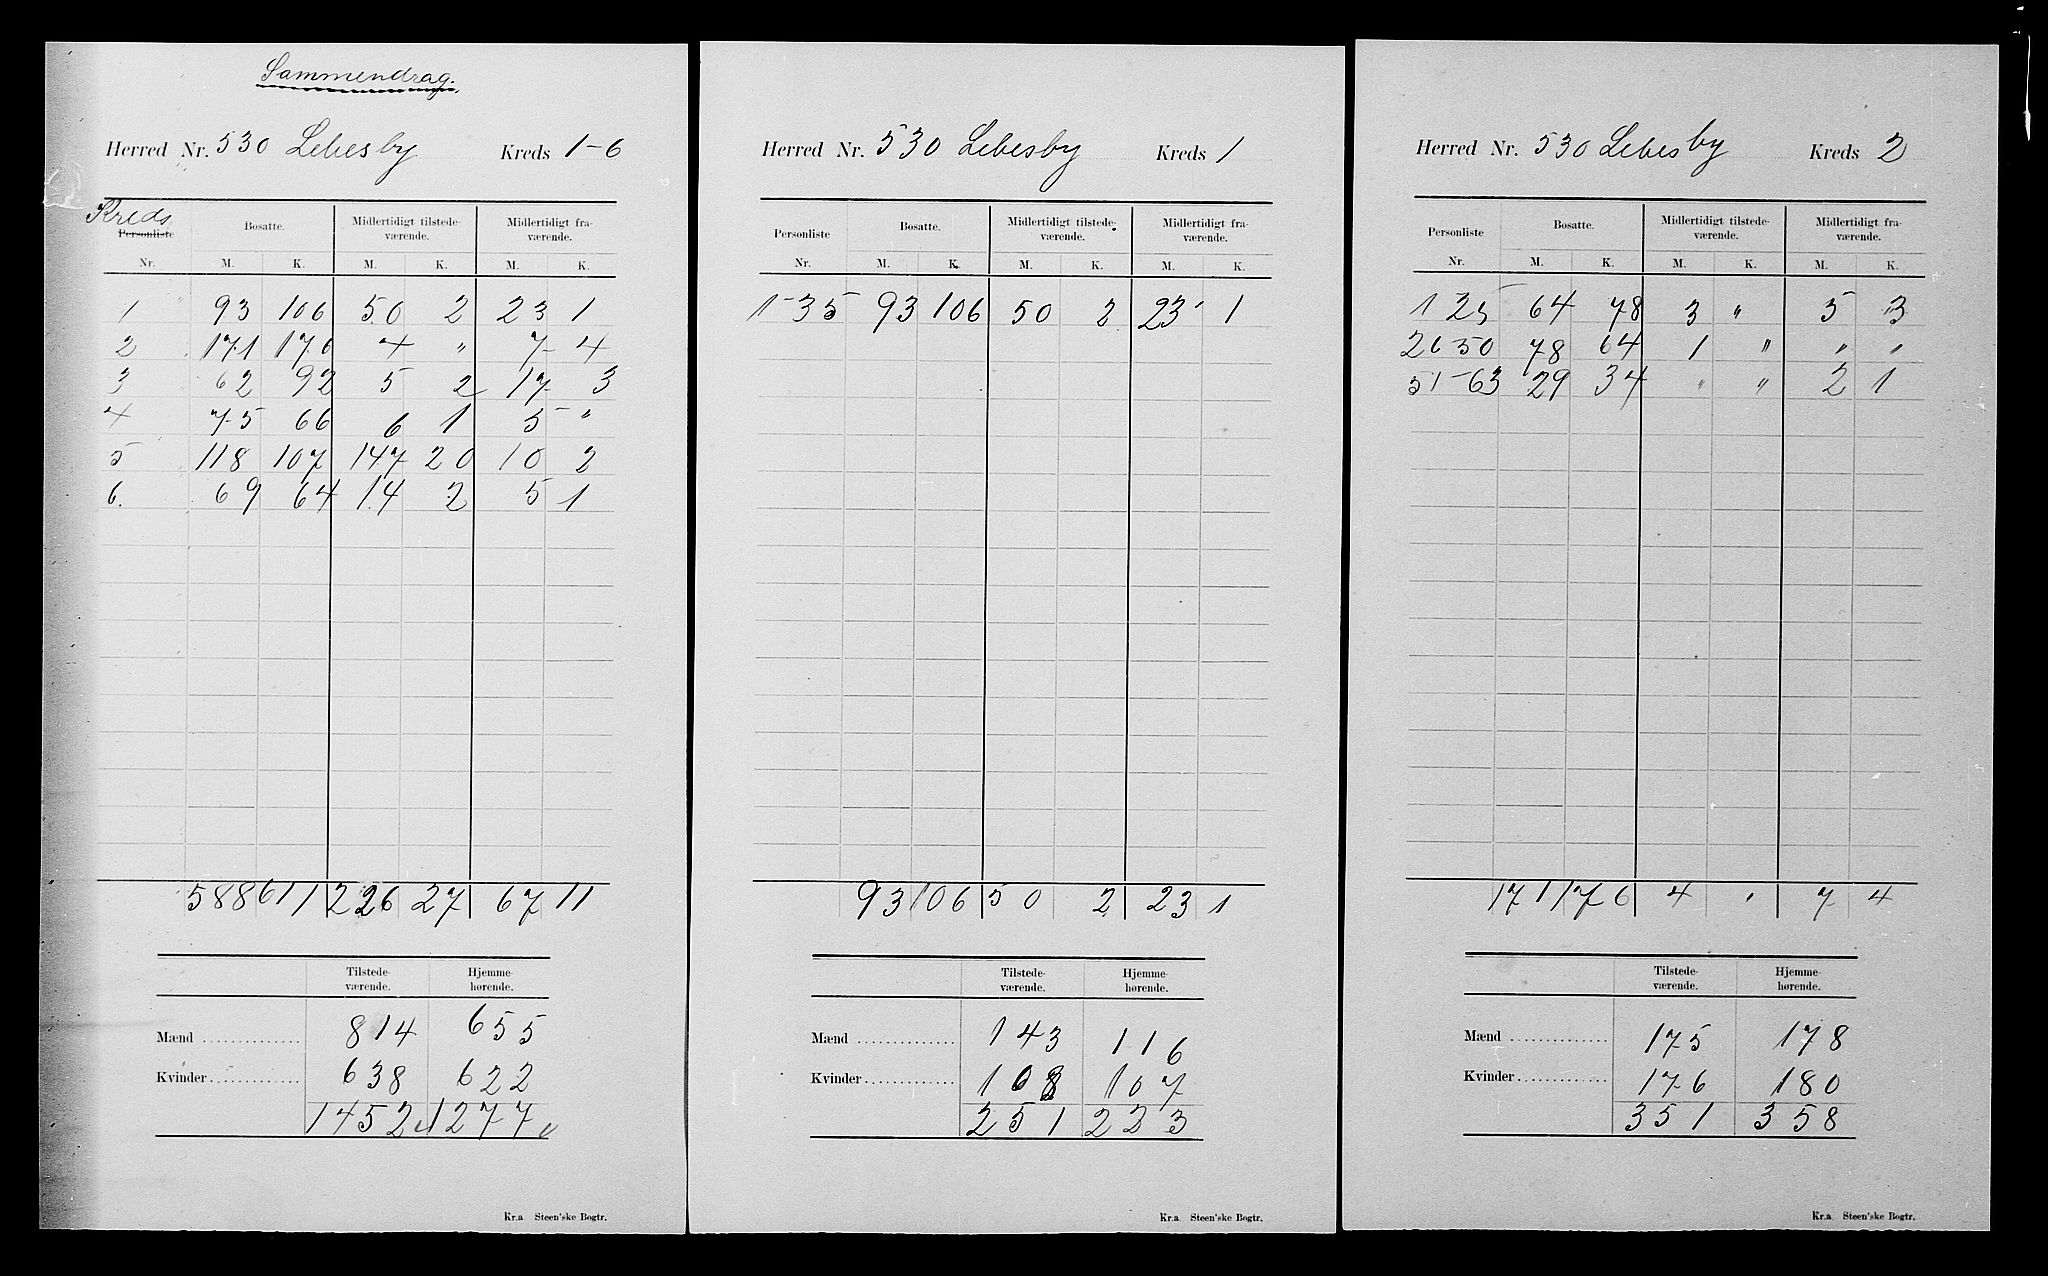 Sammendrag.
Herred Nr. 530 Lebesby Kreds 1-6
Kreds
Personliste Bosatte. Midlertidigt tilstede- Midlertidigt fra-
værende. værende.
Nr. M. K. M. K. M. K.
1 " 93 106 50 2 23 1
2 171 176 4 " 7 4
3 62 92 5 2 17 3
4 75 66 6 1 5 "
5 118 107 147 20 10 2
6. 69 64 14 2 5 1
588 611 226 27 67 11
Tilstede- Hjemme-
værende. hørende.
Mænd .............. 814 655
Kvinder............. 638 622
1452 1277
Kr.a Steen'ske Bogtr.
Herred Nr. 530 Lebesby Kreds 1
Personliste Bosatte. Midlertidigt tilstede- Midlertidigt fra-
værende. værende.
Nr. M. K. M. K. M. K.
1-35 93 106 50 2 23 1
93 106 50 2 23 1
Tilstede- Hjemme-
værende. hørende.
Mænd .............. 143 116
Kvinder............. 108 107
251 223
Kr.a Steen'ske Bogtr.
Herred Nr. 530 Lebesby Kreds 2
Personliste Bosatte. Midlertidigt tilstede- Midlertidigt fra-
værende. værende.
Nr. M. K. M. K. M. K.
1 25 64 78 3 " 5 3
26 50 78 64 1 " " "
51-63 29 34 " " 2 1
171 176 4 " 7 4
Tilstede- Hjemme-
værende. hørende.
Mænd .............. 175 178
Kvinder............. 176 180
351 358
Kr.a Steen'ske Bogtr.